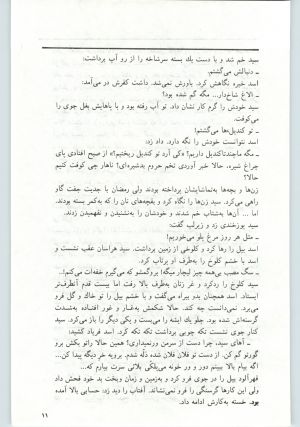 سید خم شد و با دست یك بسته سرشاخه را از رو آب برداشت:
ـ دنبالش می‌گشتم.
اسد خیره نگاهش کرد. باورش نمی‌شد. داشت کفرش در می‌آمد:
ـ الاغ شاخ‌دار... مگه گم شده بود؟
سید خودش را گرم کار نشان داد. تو آب رفته بود و با پاهایش بغل جوی را
می‌کوفت.
ـ تو کندیل‌ها می‌گشتم!
اسد نتوانست خودش را نگه دارد. داد زد:
ـ مگه ماجندتا کندیل داریم؟ «کی آرد تو کندیل ریختیم؟» از صبح افتادی پای
چراغ شیره. حالا خبر آوردی تخم حروم بدشیره‌ای؟ ناهار چی کوفت کنیم
حالا؟
زن‌ها و بچه‌ها به‌تماشایشان پرداخته بودند ولی رمضان با جدیت جفت گاو
راهی می‌کرد. سید زن‌ها را نگاه کرد و بقچه‌های نان را که به‌کمر بسته بودند.
اما ... آن‌ها به‌شتاب خم شدند و خودشان را به‌نشنیدن و نفهمیدن زدند.
سید پوزخندی زد و زیرلب گفت:
ـ مثل هر روز مرغ پلو می‌خوریم!
اسد بیل را رها کرد و کلوخی از زمین برداشت. سید هراسان عقب نشست و
اسد با خشم کلوخ را به‌طرف او پرتاب کرد.
ـ سگ مصب بی‌همه چیز لیچار میگه! بروگمشو که می‌گیرم خفه‌ات می‌کنم!..
سید کلوخ را ردکرد و غر زنان به‌طرف بالا رفت اما بیست قدم آنطرف‌تر
ایستاد. اسد همچنان بدو بیراه می‌گفت و با خشم بیل را تو خاك و گل فرو
می‌برد. نمی‌دانست چه کند. حالا شکمش به‌غار و غور افتاده به‌شدت
گرسنه‌اش شده بود. جلو یك اینشا را می‌بست و یکی دیگر را باز می‌کرد. سید
کنار جوی نشست تکه چوبی برداشت تکه تکه کرد. اسد فریاد کشید:
ـ آهای سید، چرا دست از سرمن ورنمیداری؟ همین حالا راتو بکش برو
گورتو گم کن. از دست تو فلان فلان شده دله شدم. بروبه خر دیگه پیدا کن...
اگه بیام بالا بینم دور و ور خونه می‌پلکی بلائی سرت بیارم که...
قهرآلود بیل را در جوی فرو کرد و به‌زمین و زمان وبخت بد خود فحش داد
ولی این کارها گرسنگی را فرو نمی‌نشاند. آفتاب را دید زد: حسابی بالا آمده
بود. خسته به‌کارش ادامه داد.
۱۱